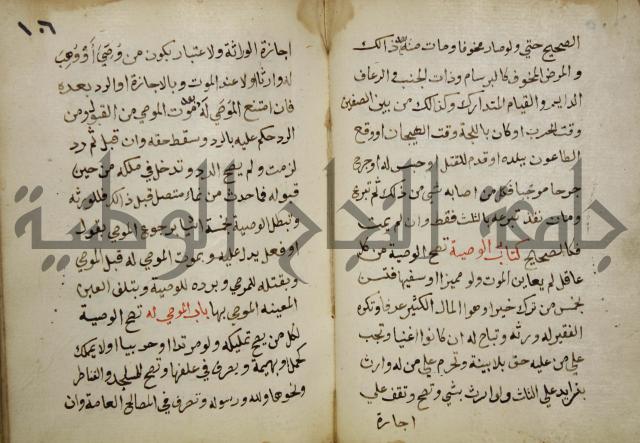 الصحيح حتي ولو صار مخوفا ومات منه بعد ذالك
والمرض المخوف كالبرسام وذات الجنب والرعاف
الدايم والقيام المتدارك وكذلك من بين الصفين
وقت الحرب او كان باللجة وقت الهيجان او وقع
الطاعون ببلده او قدم للقتل او حبس له او جرح
جرحا موحيا فكل من اصابه شي من ذلك ثم تبرع
ومات نفذ تبرعه بالثلث فقط وان لم يمت
فكالصحيح كتاب الوصية تصح الوصية من كل
عاقل لم يعاين الموت ولو مميزا او سفيها فتسن
بخمس من ترك خيرا وهو المال الكثير عرفا وتكره
لفقير له ورثه وتباح له ان كانوا اغنيا وتجب
علي من عليه حق بلا بينة وتحرم علي من له وارث
بزايد علي الثلث ولوارث بشي وتصح وتقف علي
اجازة
١٠٦
اجازة الورثة ولاعتبار بكون من وصي او وهب
له وارثا او لا عند الموت وبالاجازة او الرد بعده
فان امتنع الموصي له بعد موت الموصي من القبول ومن
الرد حكم عليه بالرد وسقط حقه وان قبل ثم رد
لزمت ولم يصح الرد وتدخل في ملكه من حين
قبوله فما حدث من نماء متصل قبل ذالك فللورثه
وتبطل الوصية بخمسة اشيا برجوع الموصي بقول
او فعل يدل عليه وبموت الموصي له قبل الموصي
وبقتله للموصي وبرده للوصية وبتلف العين
المعينه الموصي بها باب الموصي له تصح الوصية
لكل من يصح تمليكه ولو مرتدا او حربيا او لا يملك
كحمل وبهيمة ويصرف في علفها وتصح للمساجد والقناطر
ونحوها ولله ورسوله وتصرف في المصالح العامة وان
جامعة النجاح الوطنية